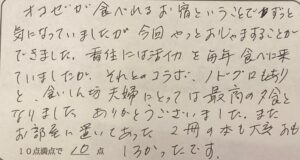 オコゼが食べれるお宿ということでずっと
気になっていましたが今回やっとおじゃますることが
できました。香住には活イカを毎年食べに来
ていましたが、それとのコラボ、ノドグロもあり
と、食いしん坊夫婦にとっては最高の夕食と
なりました ありがとうございました。また
お部屋に置いてあった 2冊の本も大変おも
10点満点で 10 点 しろかったです。